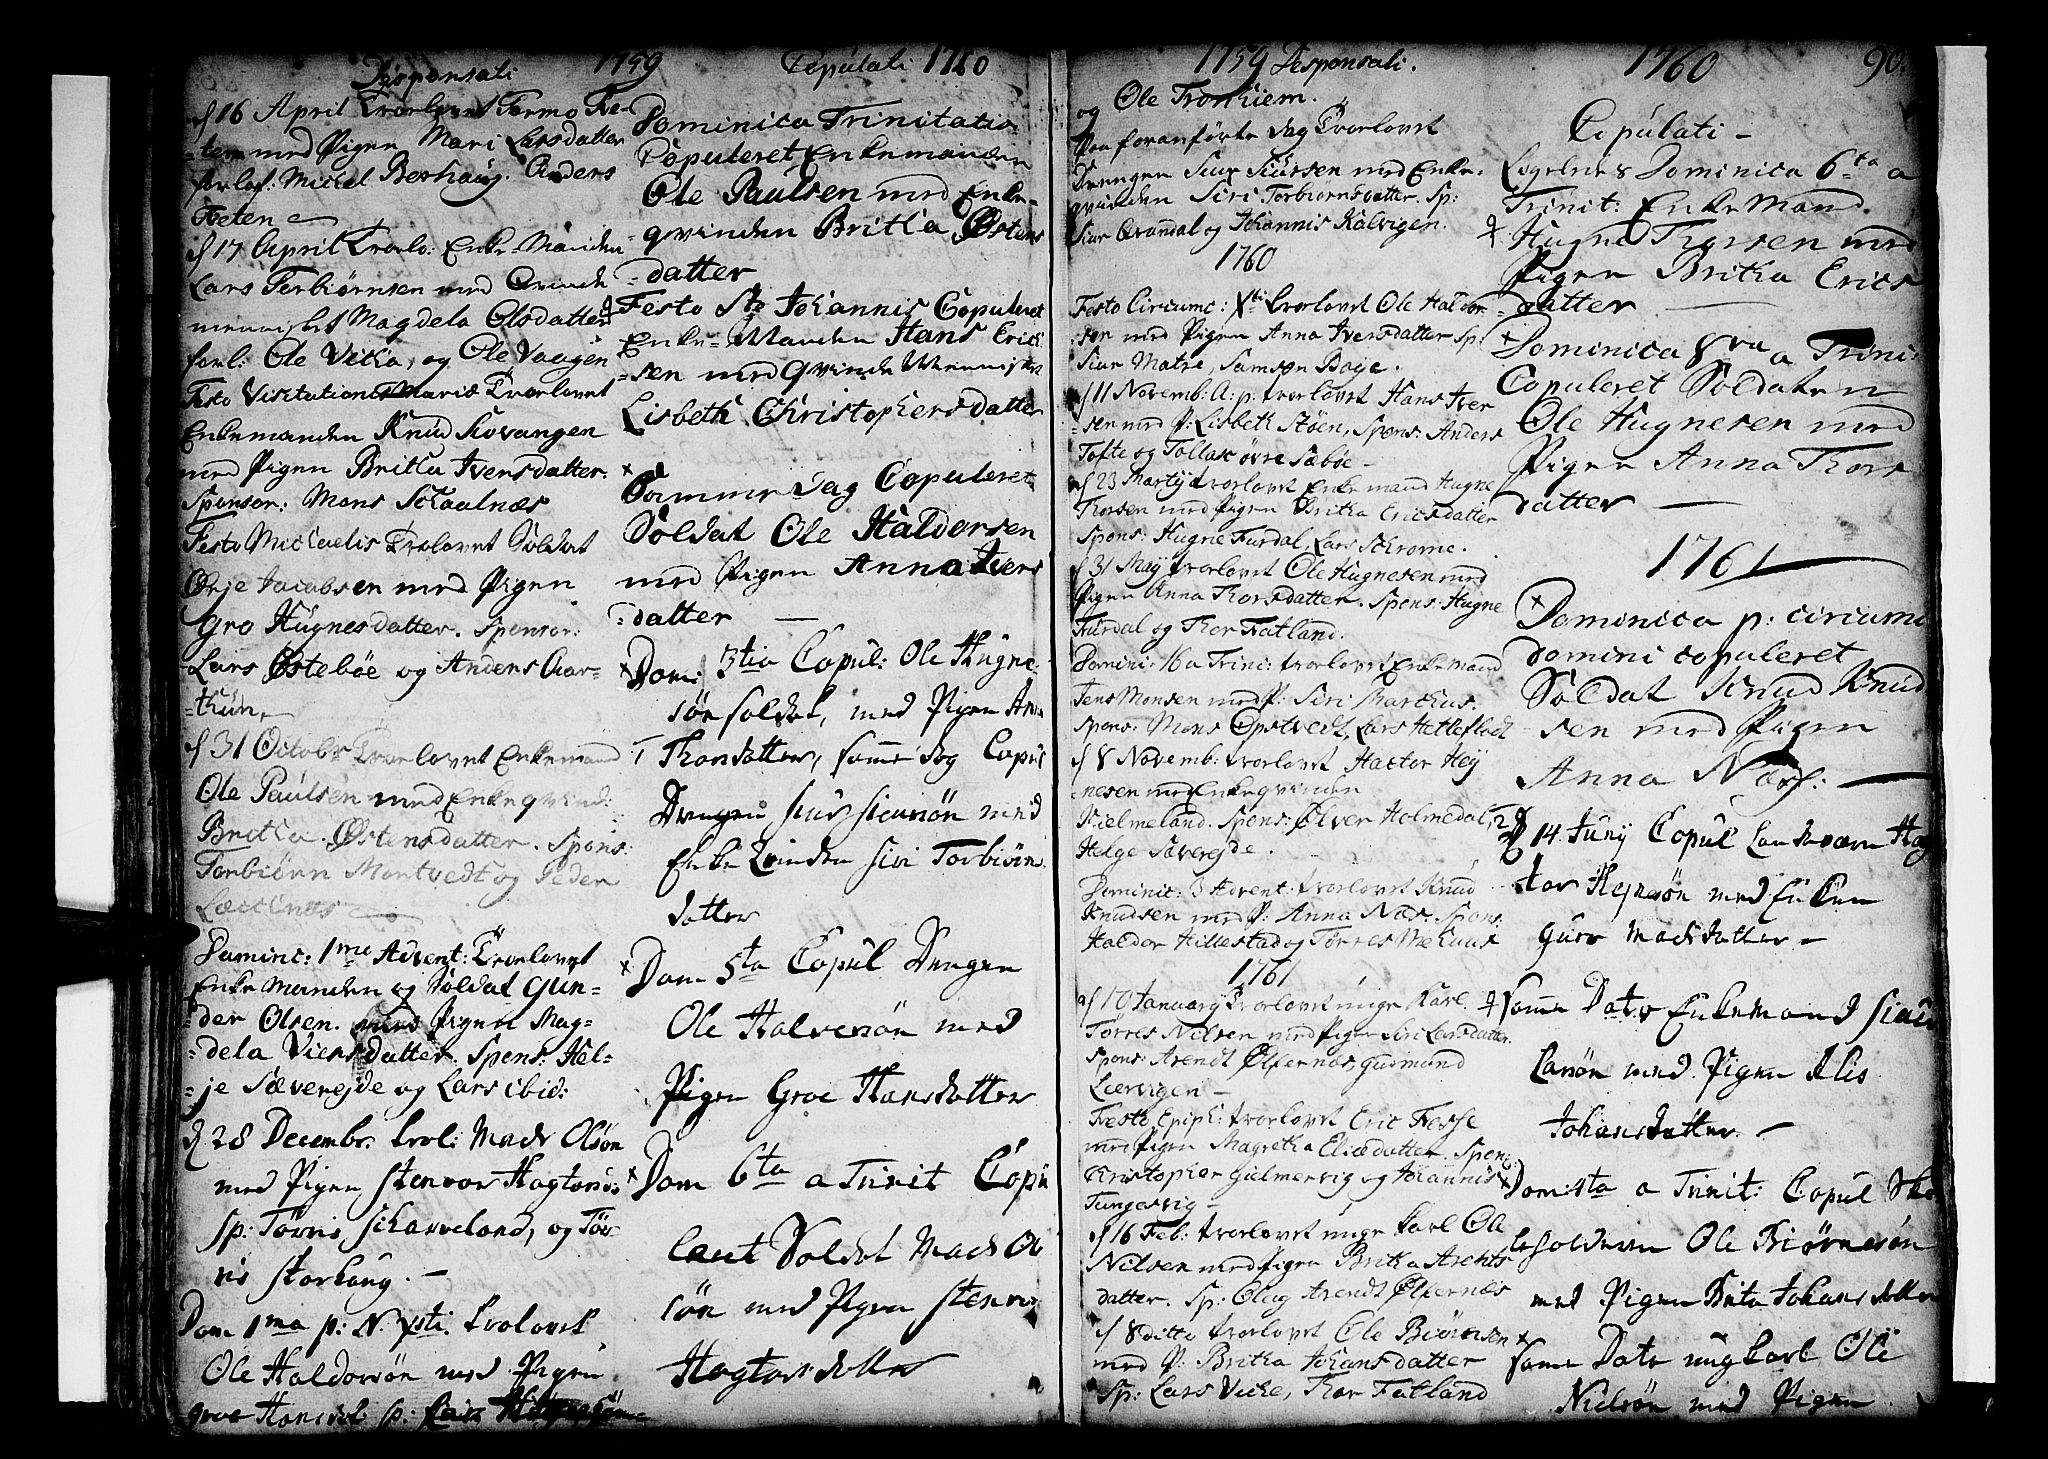 Desponsati 1759
d 16 April Trorlovet Tormo Tve-
-ten med Pigen Mari Larsdatter
forlof: Mickel Berhaug. Anders
Tveten
d 17 April Trorlo: Enke-Manden
Lars Torbiørnsen med Qvinde
mennisket Magdela Olsdatter
forl: Ole Vicka, og Ole Vaagen
Festo Visitationis Mariæ Trorlovet
Enkemanden Knud Skovangen
med Pigen Britha Iversdatter.
Sponsor: Mons Schaalnæs
Festo Michaelis Trolovet Soldat
Ørje Jacobsen med Pigen
Gro Hugnesdatter. Sponsor:
Lars Østebøe og Anders Aar-
-thun
d 31 Octobr Trorlovet Enkemand
Ole Paulsen med Enkeqvind:
Britha Østensdatter. Spons:
Torbiørn Montvedt og Peder

Dominic: 1me Advent: Trorlovet
Enkemanden og Soldat Gun-
-der Olsen med Pigen Mag-
-dela Viersdatter. Spons: Hel-
-je Sæverejde og Lars ibid:
d. 28 Decembr. trol: Mads Olsøn
med Pigen Stenvor Hagtorsd:
sp: Tørris Scharveland, og Tør-
ris Storhaug. —
Dom 1ma p: N. Xsti. trolovet
Ole Haldorsøn med Pigen
Groe Hansdt: sp:
Copulati 1760
Dominica Trinitatis
Copuleret Enkemanden
Ole Paulsen med Enke-
-qvinden Britha Østens
-datter
Festo Sti Johannis Copuleret
Enke-Manden Hans Erich
-sen med Qvinde Mennisket
Lisbeth Christophersdatter
Samme Dag Copuleret
Soldat Ole Haldorsen
med Pigen Anna Ivers
-datter —
Dom: 3tia Copul: Ole Hugne-
søn soldat, med Pigen An
Thorsdatter, samme dag Copul
Drengen Siur Siursøn med
Enke Qvinden Siri Torbiørn
datter
Dom 5ta Copul Drengen
Ole Halvorsøn med
Pigen Groe Hansdatter
Dom 6ta a Trinit Copu
leret Soldat Mads Ol
søn med Pigen Stenvor
Hagtorsdatter
1759 Desponsati.
og Ole Tronhiem.
Paa foranførte dag Trorlovet
Drengen Siur Siursen med Enke-
qvinden Siri Torbiornsdatter. Sp:
Siur Qvamdal og Johannis Kalvigen.
1760
Festo Circumc: Xsti trorlovet Ole Haldor-
sen med Pigen Anna Iversdatter Sp:
Siur Matre, Samson Boge.
d 11 Novemb: A: p: trorlovet Hans Iver
-sen med P: Lisbeth Støen, Spons: Anders
Tofte og Tollac øvre Sæbøe —
d 23 Martij trorlovet Enkemand Hugne
Thorsen med Pigen Britha Ericsdatter
Spons: Hugne Furdal, Lars Schrome.
d 31 Maij trorlovet Ole Hugnesen med
Pigen Anna Thorsdatter. Spons: Hugne
Furdal og Thor Fatland.
Domini: 16 a Trini: trorlovet Enkemand
Jens Monsen med P: Siri Marthus:
Spons: Mons Opstvedt, Lars Hetleflodt
d 8 Novemb: trorlovet Hactor Hey
-nesen med Enkeqvinden
Kielmeland. Spons: Ølver Holmedal,
Helge Sæverejde.
Dominic: 3 Advent: trorlovet Knud
Knudsen med P: Anna Næs. Spons:
Haldor Hillestad og Tørres Mehuus
1761
d 10 January Trorlovet unge Karl
Torres Nilsen med Pigen Siri Larsdatter.
Spons: Arendt Ølfernes, Gudmund
Liervigen —
Festo Epiph: trorlovet Eric Fosse
med Pigen Magretha Eliædatter. Spons:
Christopher Gielmervig og Johannis
Tungesvig —
d 16 Feb: trorlovet unge karl Ole
Nilsen med Pigen Britha Arents
datter. Sp: Oluf Arendt Ølfernes
d 8 ditto trorlovet Ole Biørnsen
med P: Britha Johansdatter
Sp: Lars Vicke, Thor Fatland
1760 90.
Copulati —
Ligeledes Dominica 6ta a
Trinit: Enke Mand.
Hugne Thorsen med
Pigen Britha Erics
datter —
Dominica 8va a Trini:
Copuleret Soldaten
Ole Hugnesen med
Pigen Anna Thors
datter —
1761
Dominica p: circumc
domini copuleret
Soldat Knud Knud
-sen med Pigen
Anna Næss: —
D 14 Junij Copul Landværn Hag
tor Heinesøn med Enken
Guro Madsdatter —
Samme Dato Enkemand Siur
Larsøn med Pigen Elis
Johansdatter. —
Dom: 4ta a Trinit: Copul
soldaten Ole Biørnesøn
med Pigen Brita Johansdatter
Samme Dato ungkarl Ole
Nielsøn med Pigen